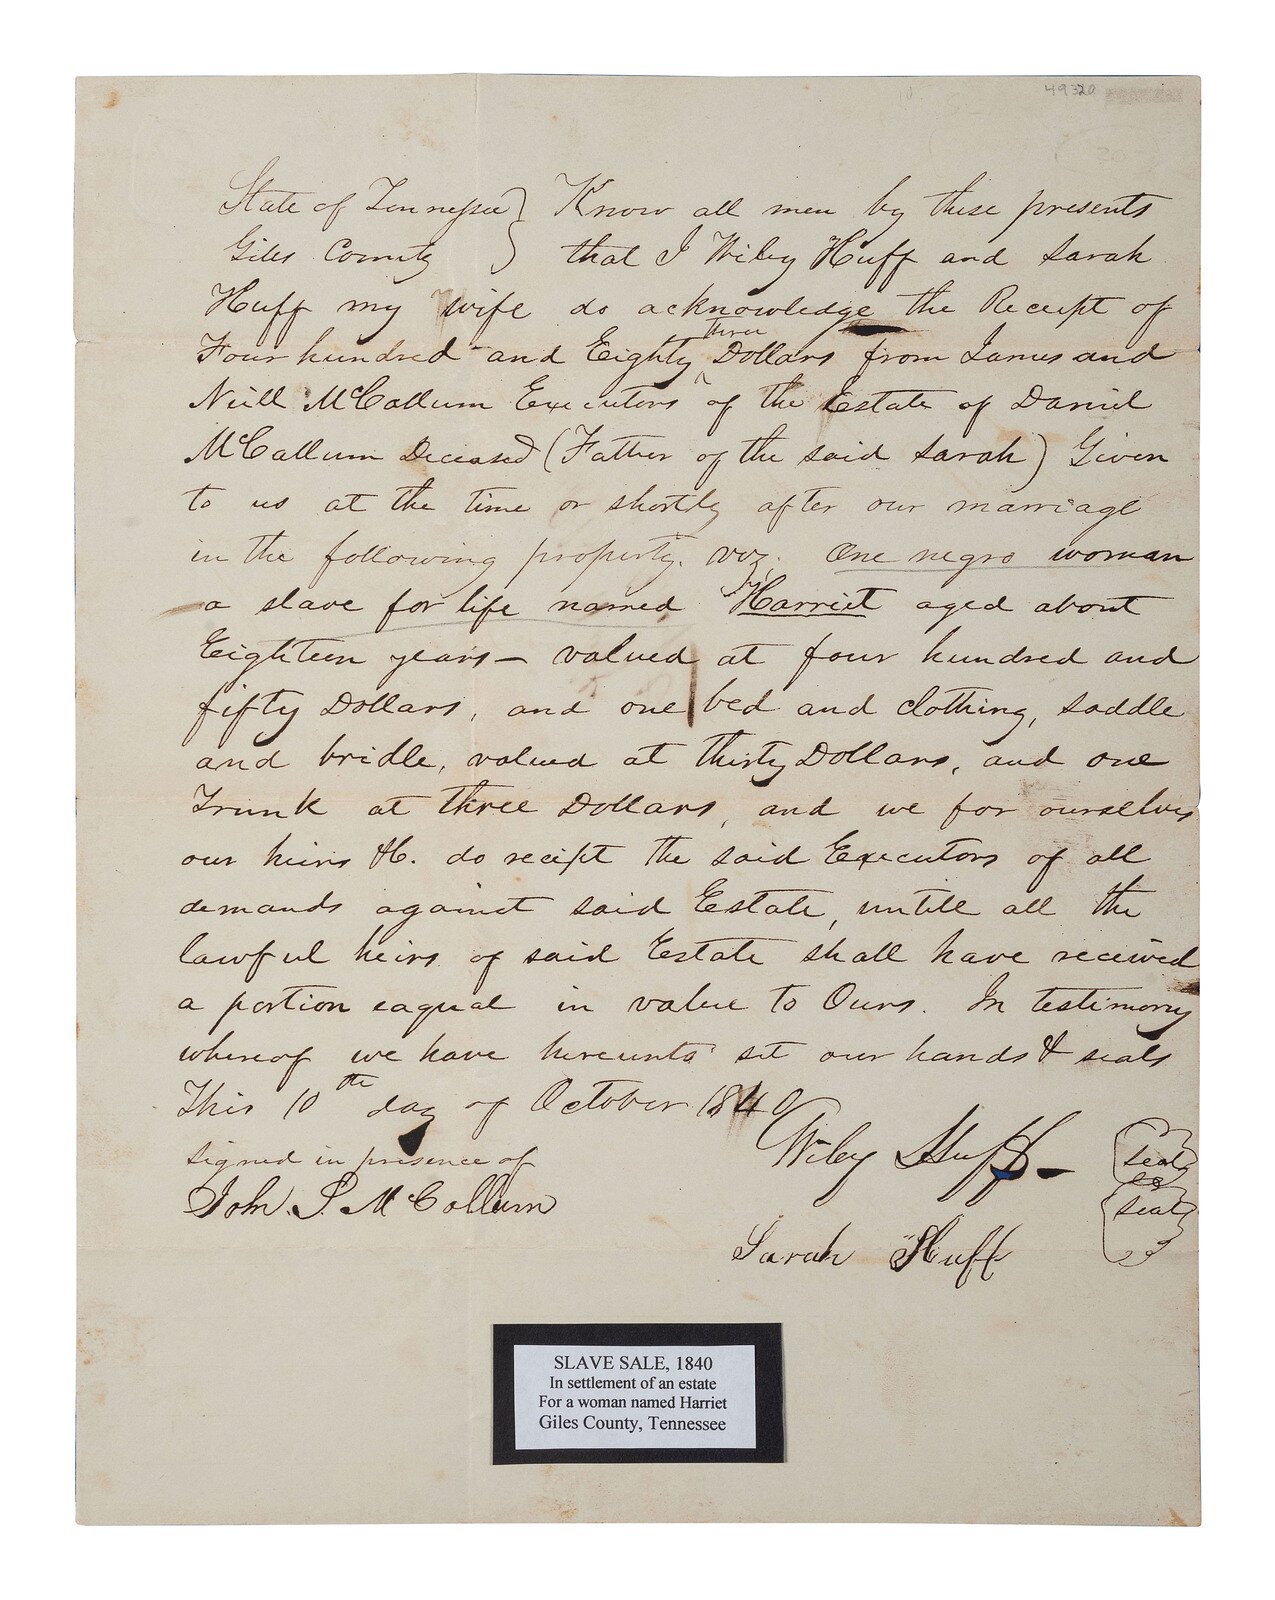 49320
State of Tennessee } Know all men by these presents
Giles County } that I Wiley Huff and Sarah
Huff my wife do acknowledge the Receipt of
Four hundred and Eighty ^three Dollars from James and
Neill McCallum Executors of the Estate of Daniel
McCallum Deceased (Father of the said Sarah) Given
to us at the time or shortly after our marriage
in the following property. viz. One negro woman
a slave for life named Harriet aged about
Eighteen years — valued at four hundred and
fifty Dollars, and one bed and clothing, saddle
and bridle, valued at thirty Dollars, and one
Trunk at three Dollars, and we for ourselves
our heirs &c. do recipt the said Executors of all
demands against said Estate, untill all the
lawful heirs of said Estate shall have received
a portion eaqual in value to Ours. In testimony
whereof we have hereunto set our hands & seals
This 10th day of October 1840
signed in presence of
John. S. McCollum
Wiley Huff — seal
Sarah Huff seal
SLAVE SALE, 1840
In settlement of an estate
For a woman named Harriet
Giles County, Tennessee